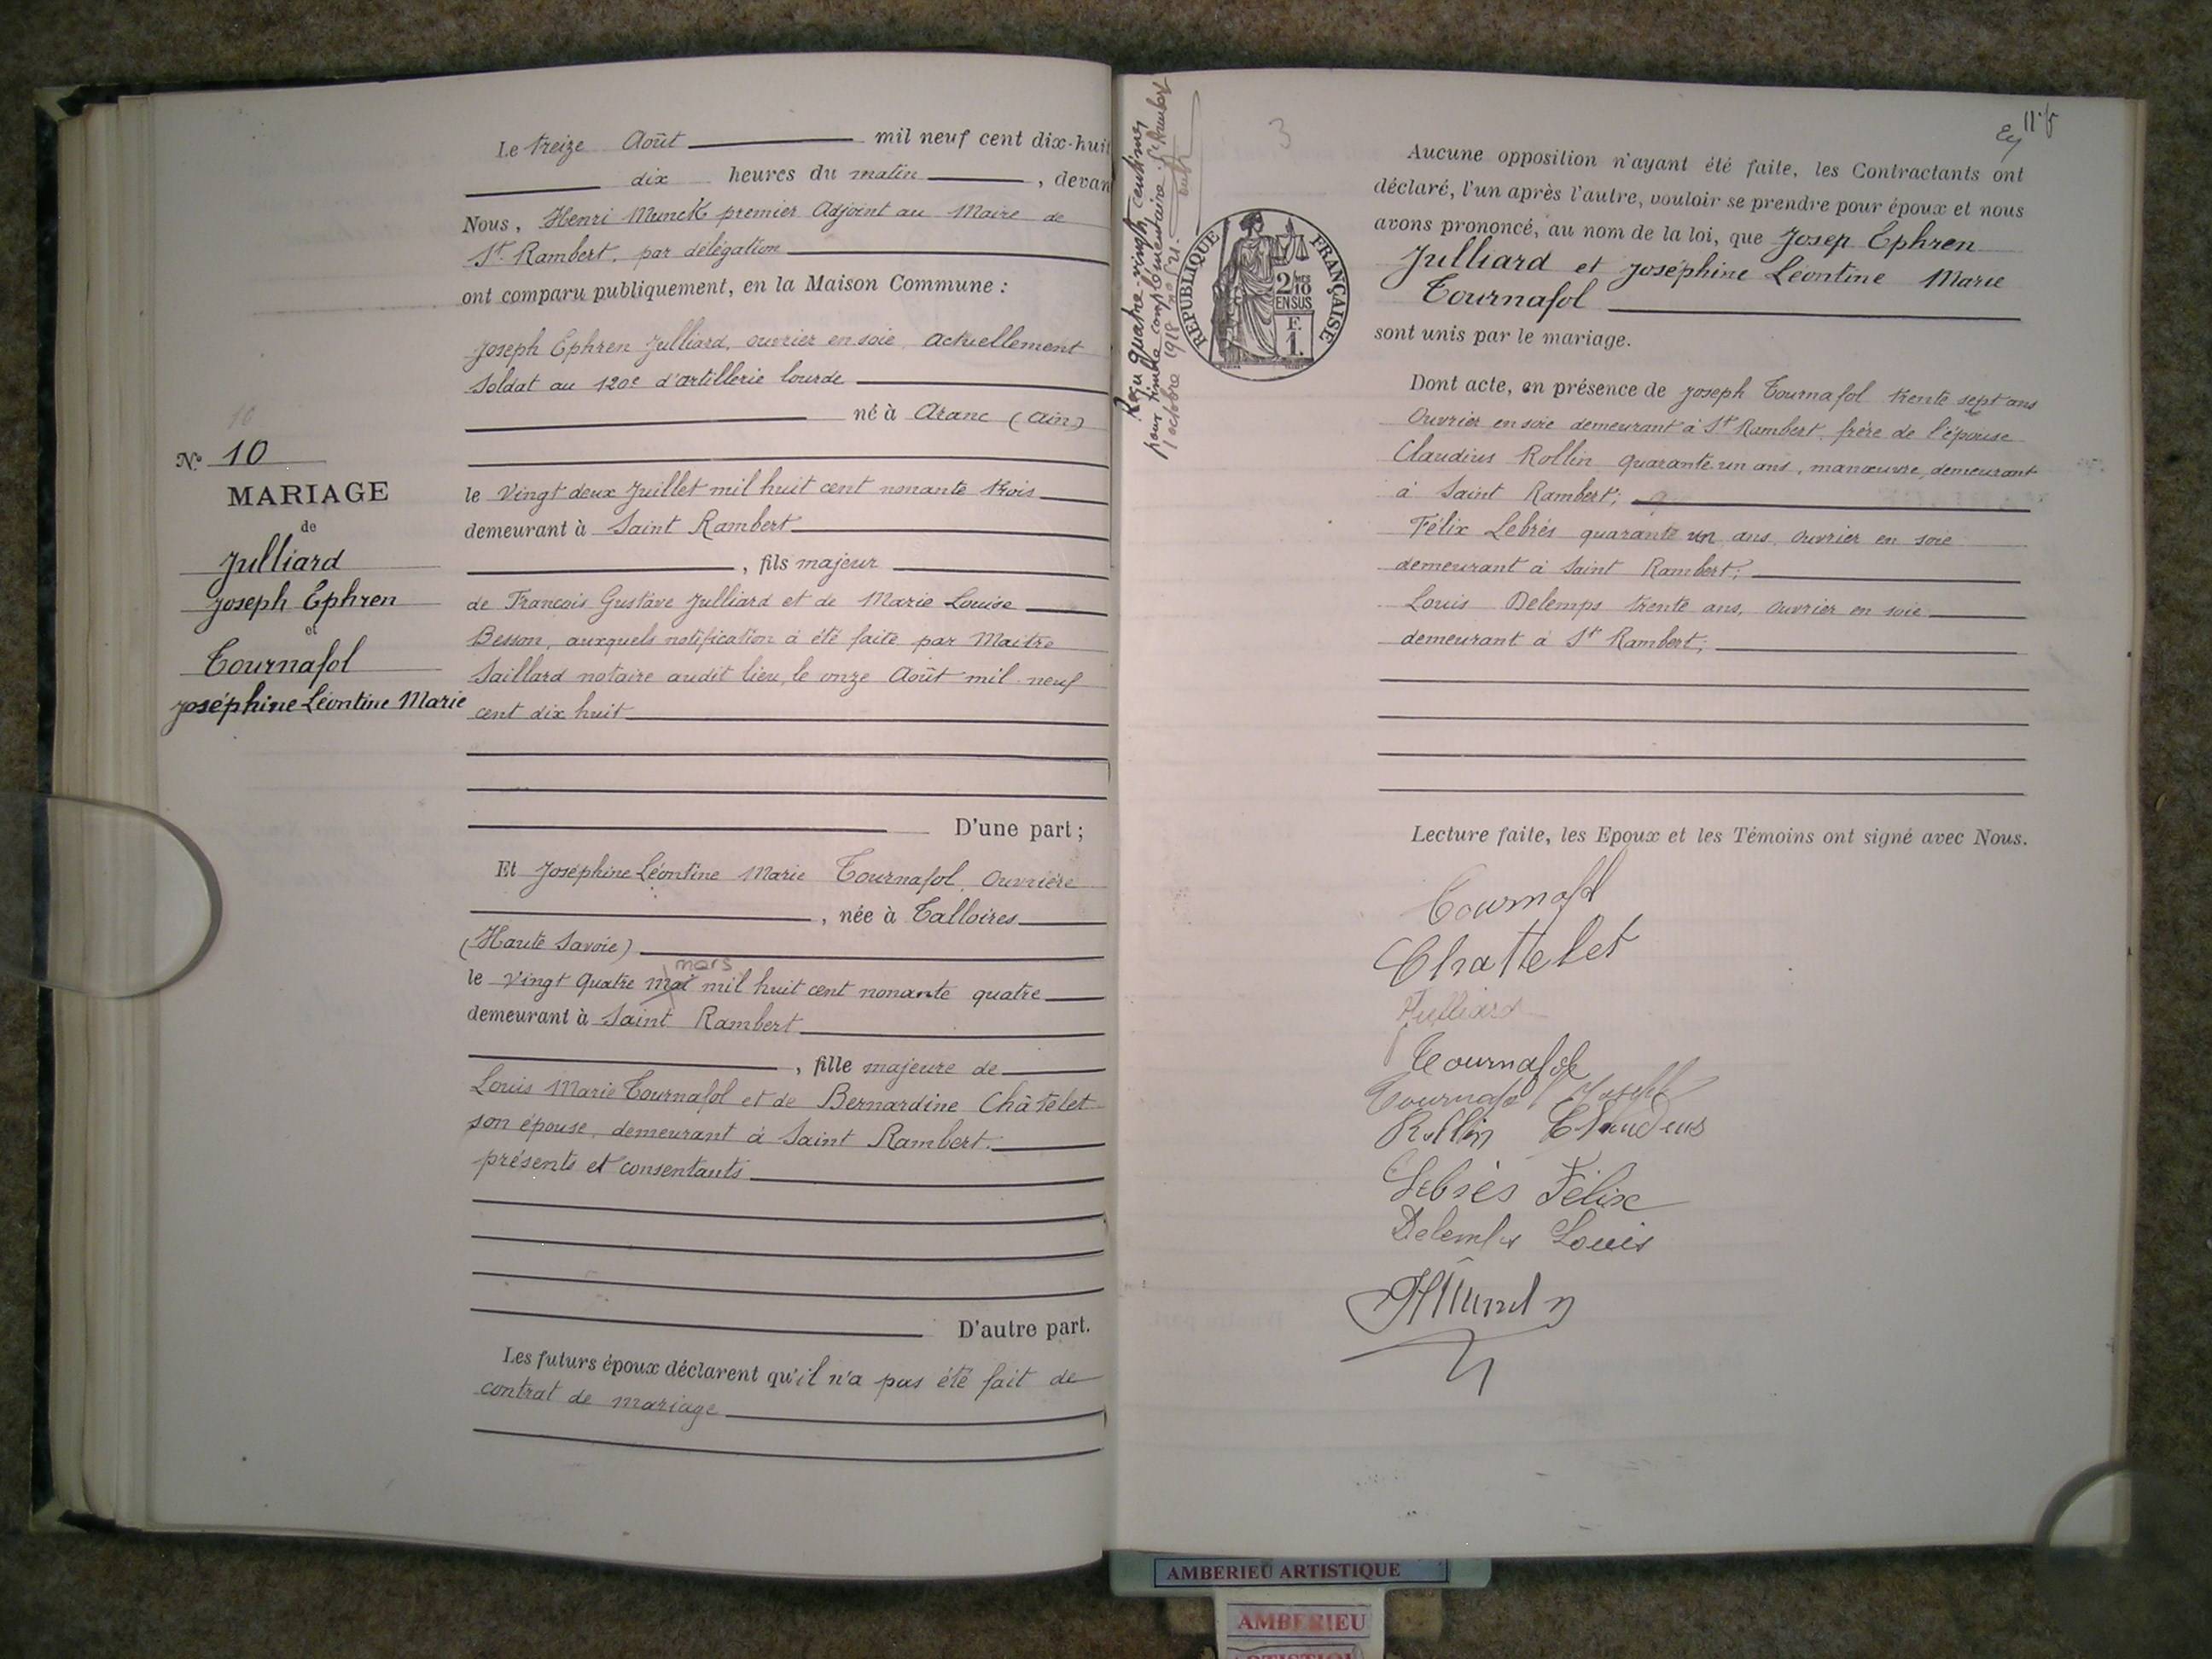 Le treize Août mil neuf cent dix-huit
dix heures du matin, devan
Nous, Henri Munck premier Adjoint au Maire de
St. Rambert, par délégation
ont comparu publiquement, en la Maison Commune :
Joseph Ephren Julliard, ouvrier en soie, actuellement
Soldat au 120e d'artillerie lourde
né à Aranc (Ain)
le Vingt deux Juillet mil huit cent nonante trois
demeurant à Saint Rambert
, fils majeur
de Francois Gustave Julliard et de Marie Louise
Besson, auxquels notification à été faite par Maitre
Saillard notaire audit lieu, le onze Août mil neuf
cent dix huit
D'une part ;
Et Joséphine Léontine Marie Tournafol, Ouvrière
, née à Talloires
(Haute Savoie)
mars
le Vingt Quatre mai mil huit cent nonante quatre
demeurant à Saint Rambert
, fille majeure de
Louis Marie Tournafol et de Bernardine Châtelet
son épouse, demeurant à Saint Rambert.
présents et consentants
D'autre part.
Les futurs époux déclarent qu'il n'a pas été fait de
contrat de mariage
10
N° 10
MARIAGE
de
Julliard
Joseph Ephren
et
Tournafol
Joséphine Léontine Marie
Reçu quatre-vingts centimes
pour timbre complémentaire. St Rambert
1 octobre 1918
3
REPUBLIQUE FRANÇAISE
2/10 EN SUS
F. 1.
Aucune opposition n'ayant été faite, les Contractants ont
déclaré, l'un après l'autre, vouloir se prendre pour époux et nous
avons prononcé, au nom de la loi, que Josep Ephren
Julliard et Joséphine Léontine Marie
Tournafol
sont unis par le mariage.
Dont acte, en présence de Joseph Tournafol trente sept ans
Ouvrier en soie demeurant à St Rambert, frère de l'épouse
Claudius Rollin quarante un ans, manœuvre, demeurant
à Saint Rambert;
Félix Lebrés quarante un ans, ouvrier en soie
demeurant à Saint Rambert;
Louis Delemps trente ans, ouvrier en soie
demeurant à St Rambert;
Lecture faite, les Epoux et les Témoins ont signé avec Nous.
Tournafol
Chattelet
Julliard
Tournafol
Tournafol Joseph
Rollin Claudius
Lebrès Félix
Delemps Louis
HMunck
AMBERIEU ARTISTIQUE
AMBERIEU
ARTISTIQUE